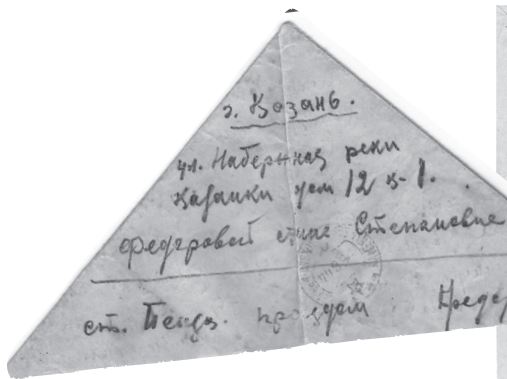 г. Казань.
ул. Набережная реки
Казанки дом 12 к-1.
Федоровой Степановне
ст. Пенза. проездом